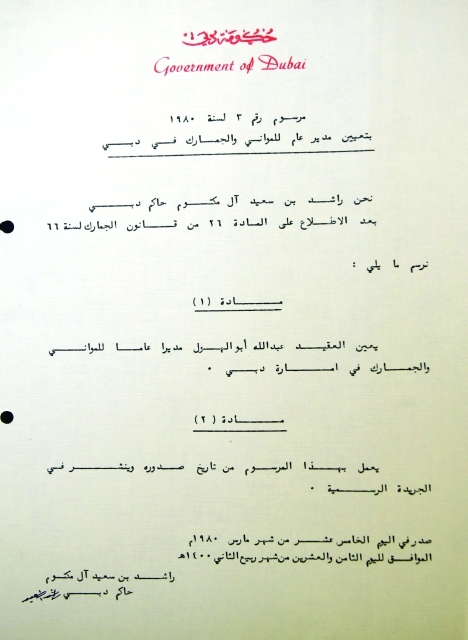 حكومة دبي
Government of Dubai
مرسوم رقم ٣ لسنة ١٩٨٠
بتعيين مدير عام للموانئ والجمارك في دبي
نحن راشد بن سعيد آل مكتوم حاكم دبي
بعد الاطلاع على المادة ٢٦ من قانون الجمارك لسنة ٦٦
نرسم ما يلي :
مادة (١)
يعين العقيد عبدالله أبو الهول مديرا عاما للموانئ
والجمارك في امارة دبي .
مادة (٢)
يعمل بهذا المرسوم من تاريخ صدوره وينشر في
الجريدة الرسمية .
صدر في اليوم الخامس عشر من شهر مارس ١٩٨٠م
الموافق لليوم الثامن والعشرين من شهر ربيع الثاني ١٤٠٠هـ
راشد بن سعيد آل مكتوم
حاكم دبي